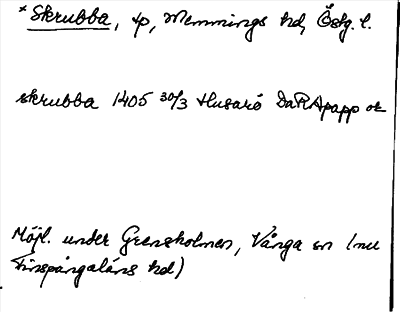 * Skrubba, tp, Memmings hd, Östg. l.
skrubba 1405 30/3 Husarö DaRApapp or
Möjl. under Grensholmen, Vånga sn (nu
Finspångaläns hd)